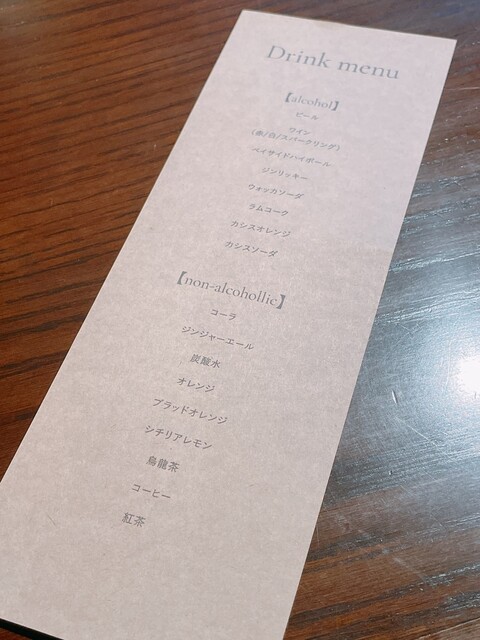 Drink menu
【alcohol】
ビール
ワイン
(赤/白/スパークリング)
ベイサイドハイボール
ジンリッキー
ウォッカソーダ
ラムコーク
カシスオレンジ
カシスソーダ
【non-alcohollic】
コーラ
ジンジャーエール
炭酸水
オレンジ
ブラッドオレンジ
シチリアレモン
烏龍茶
コーヒー
紅茶